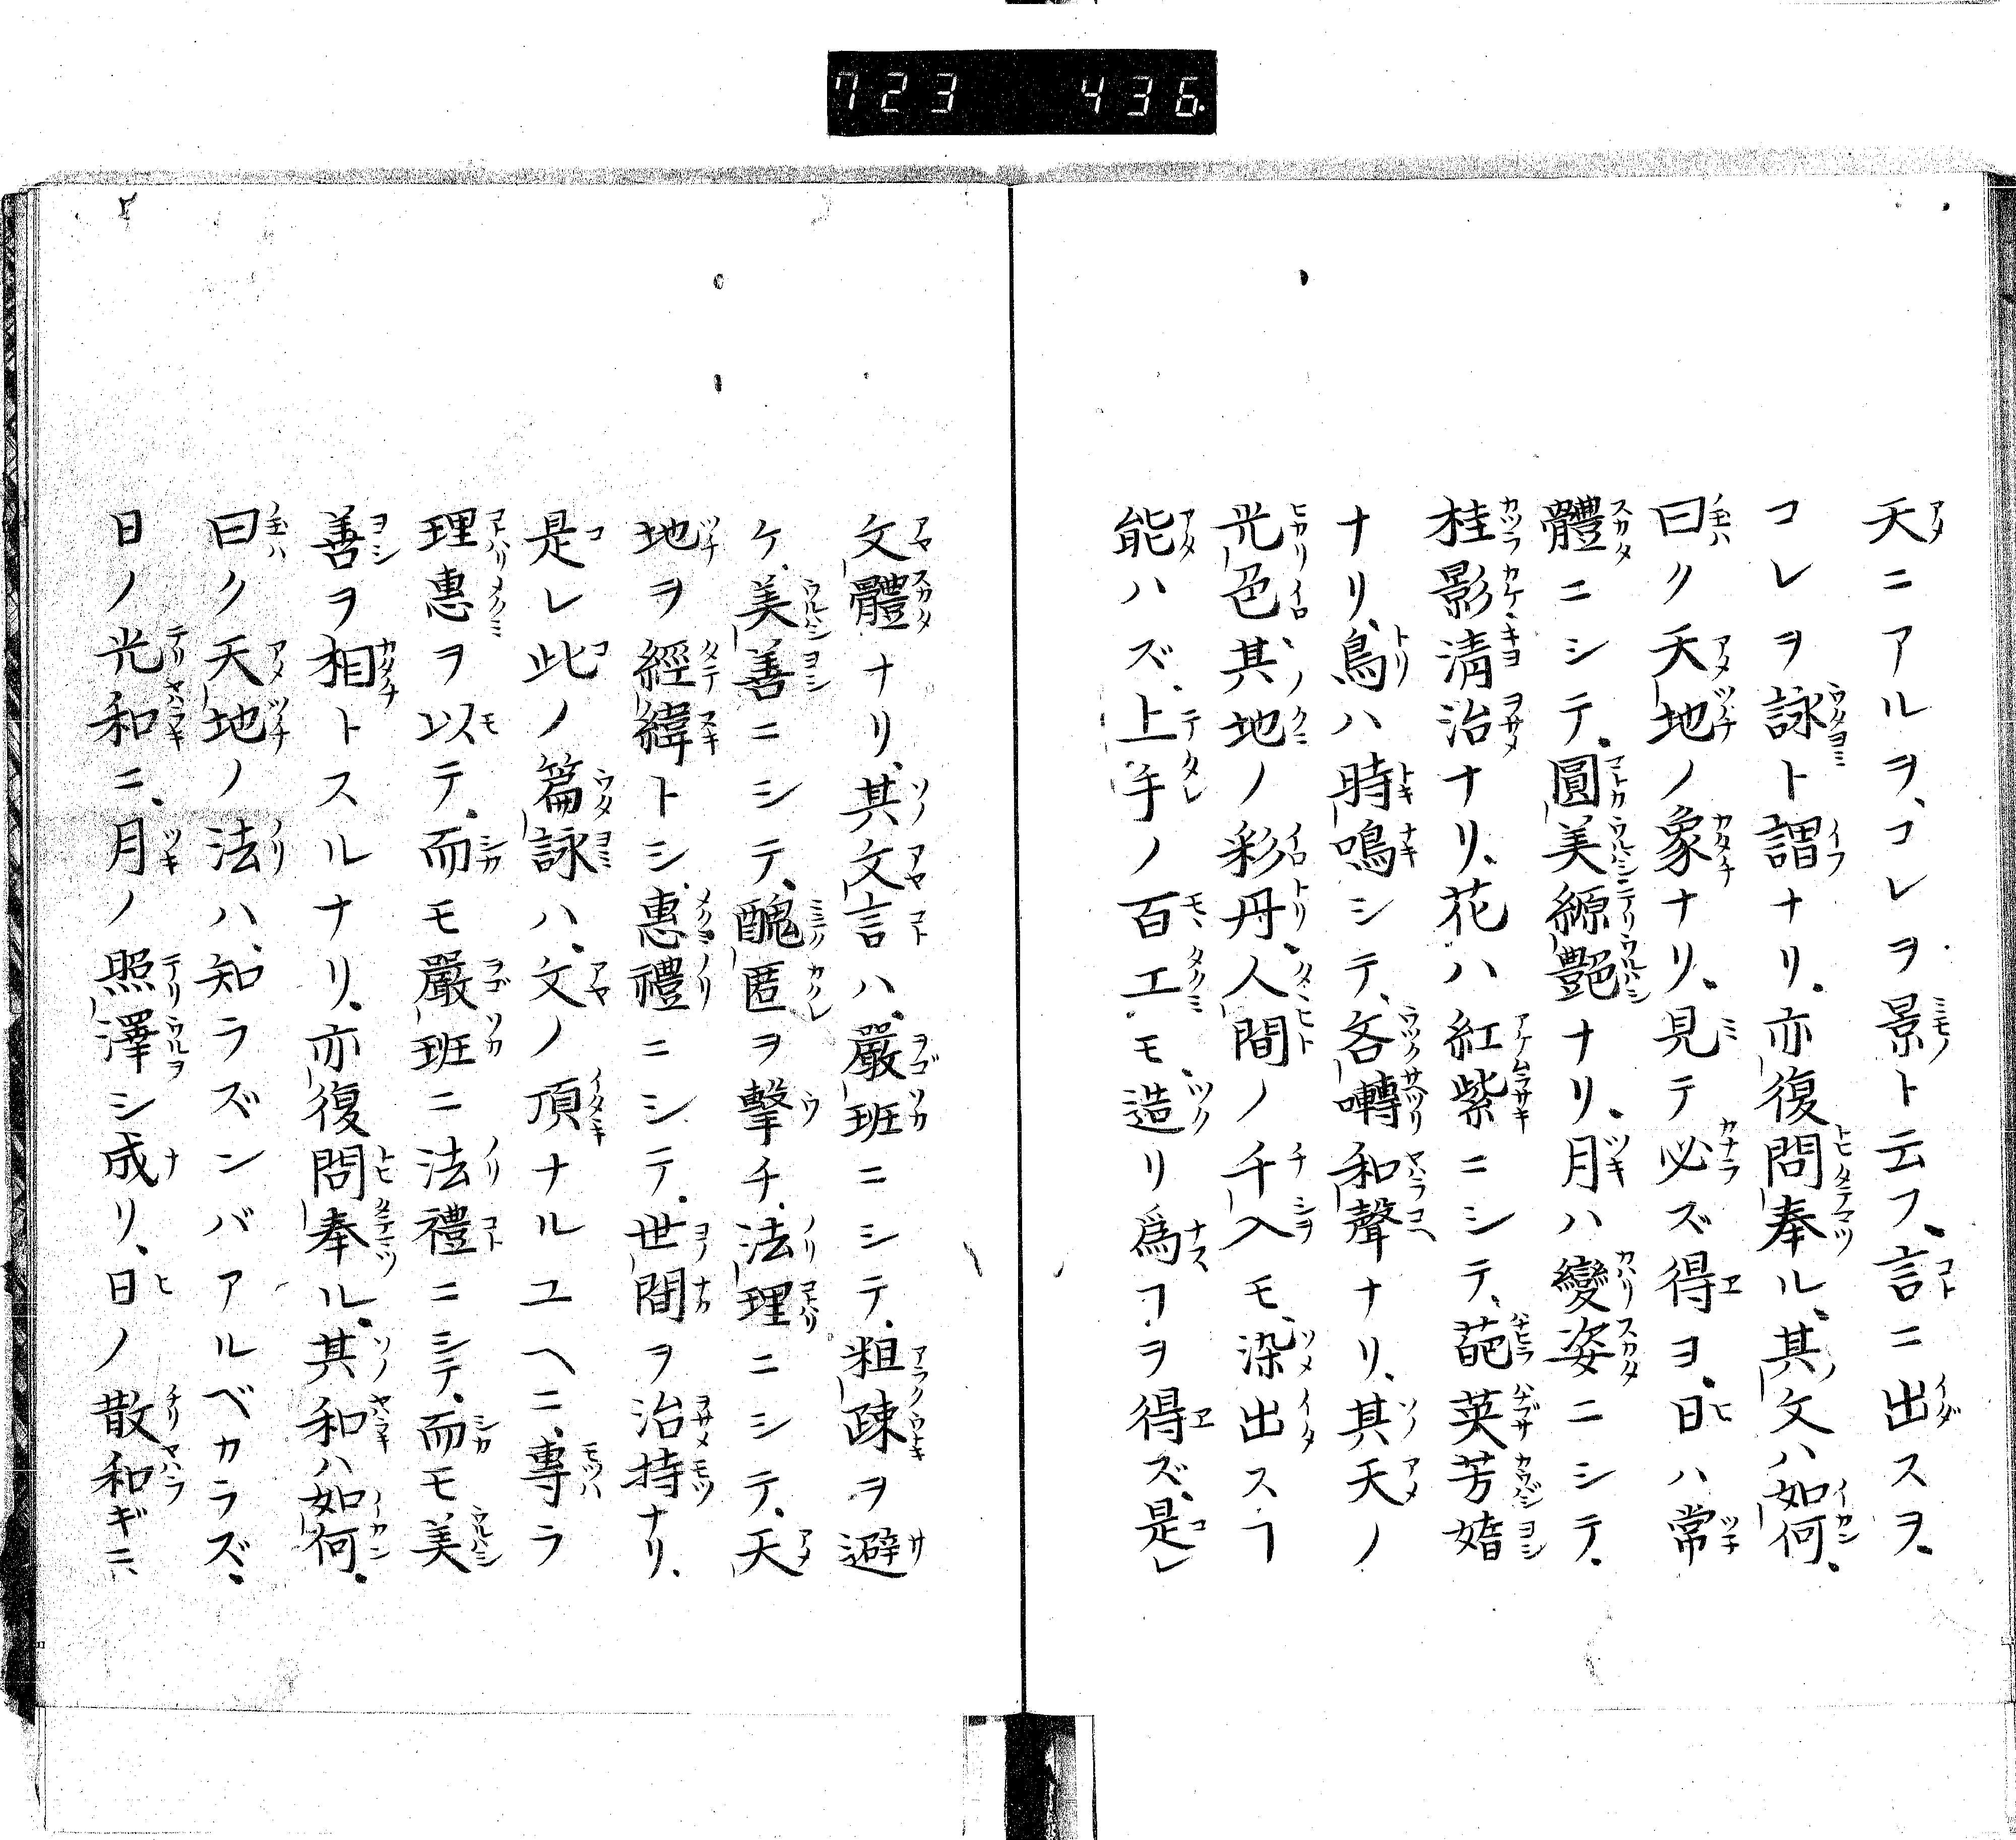 723 436
天ニアルヲ、コレヲ景ト云フ、言ニ出スヲ、
コレヲ詠ト謂ナリ、亦復問奉ル、其文ハ如何、
曰ク天地ノ象ナリ、見テ必ズ得ヨ、日ハ常
體ニシテ、圓美縓艶ナリ、月ハ變姿ニシテ、
桂影淸治ナリ、花ハ紅紫ニシテ、葩英芳㛭
ナリ、鳥ハ時鳴シテ、各囀和聲ナリ、其天ノ
光色、其地ノ彩丹、人間ノ千入モ、染出スヿ
能ハズ、上手ノ百工モ、造リ爲ヿヲ得ズ、是レ
文體ナリ、其文言ハ、嚴班ニシテ、粗疎ヲ避
ケ、美善ニシテ、醜匿ヲ擊チ、法理ニシテ、天
地ヲ經緯トシ、惠禮ニシテ、世間ヲ治持ナリ、
是レ此ノ篇詠ハ、文ノ頂ナルユヘニ、專ラ
理惠ヲ以テ、而モ嚴班ニ法禮ニシテ、而モ美
善ヲ相トスルナリ、亦復問奉ル、其和ハ如何、
曰ク天地ノ法ハ、知ラズンバアルベカラズ、
日ノ光和ニ、月ノ照澤シ成リ、日ノ散和ギニ、